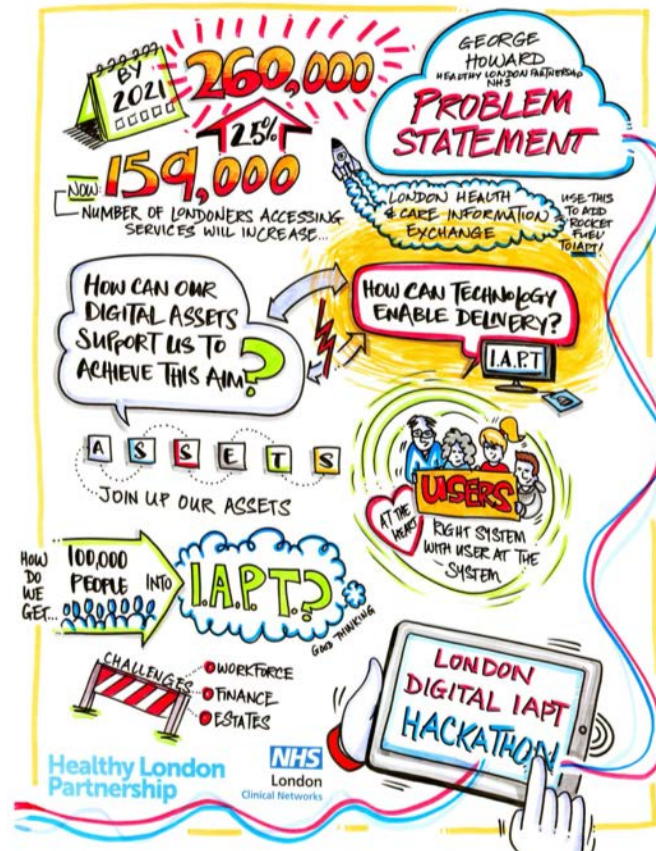 BY
2021
260,000
25%
NOW: 159,000
NUMBER OF LONDONERS ACCESSING
SERVICES WILL INCREASE...
GEORGE
HOWARD
HEALTHY LONDON PARTNERSHIP
NHS
PROBLEM
STATEMENT
LONDON HEALTH
& CARE INFORMATION
EXCHANGE
USE THIS
TO ADD
'ROCKET
FUEL'
TO IAPT!
HOW CAN OUR
DIGITAL ASSETS
SUPPORT US TO
ACHIEVE THIS AIM?
HOW CAN TECHNOLOGY
ENABLE DELIVERY?
I.A.P.T
ASSETS
JOIN UP OUR ASSETS
USERS
AT THE
HEART
RIGHT SYSTEM
WITH USER AT THE
SYSTEM
HOW
DO
WE
GET...
100,000
PEOPLE
INTO
I.A.P.T?
GOOD THINKING
CHALLENGES
WORKFORCE
FINANCE
ESTATES
LONDON
DIGITAL IAPT
HACKATHON
Healthy London
Partnership
NHS
London
Clinical Networks